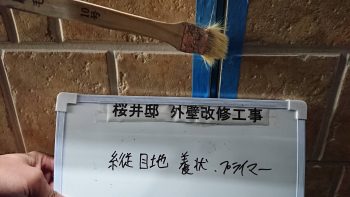 10号
桜井邸 外壁改修工事
縦目地 養状.プライマー